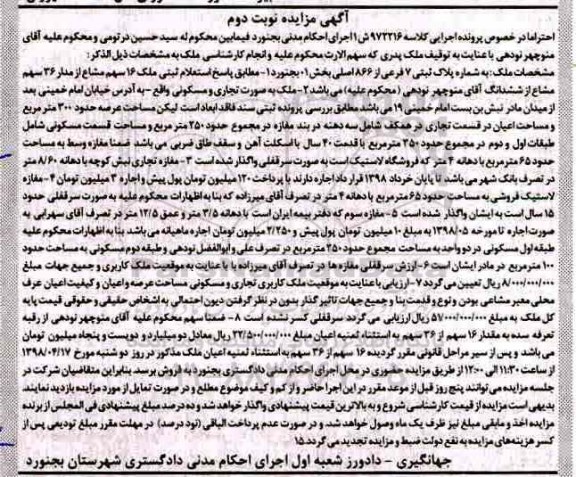 آگهی مزایده نوبت دوم
احتراما در خصوص پرونده اجرایی کلاسه ۹۷۲۲۱۶ ش ۱ اجرای احکام مدنی بجنورد فیمابین محکوم له سید حسین درتومی و محکوم علیه آقای
منوچهر نودهی با عنایت به توقیف ملک پدری که سهم الارث محکوم علیه و انجام کارشناسی ملک به مشخصات ذیل الذکر:
مشخصات ملک: به شماره پلاک ثبتی ۷ فرعی از ۸۶۶ اصلی بخش ۰۱ بجنورد ۱- مطابق پاسخ استعلام ثبتی ملک ۱۶ سهم مشاع از مدار ۳۶ سهم
مشاع از ششدانگ آقای منوچهر نودهی (محکوم علیه) می باشد ۲- ملک به صورت تجاری و مسکونی واقع -به آدرس خیابان امام خمینی ۳۶ سهم
از میدان مادر نبش بن بست امام خمینی ۱۹ می باشد مطابق بررسی پرونده ثبتی سند فاقد ابعاد است لیکن مساحت عرصه حدود ۳۰۰ متر مربع
و مساحت اعیان در قسمت تجاری در همکف شامل سه دهنه در بند مغازه در مجموع حدود ۲۵۰ متر مربع و مساحت قسمت مسکونی شامل
طبقات اول و دوم در مجموع حدود ۳۵۰ مترمربع با قدمت ۴۰ سال با اسکلت آهن و سقف طاق ضربی می باشد ضمنا مغازه وسط به مساحت
حدود ۶۵ مترمربع با دهانه ۴ متر که فروشگاه لاستیک است به صورت سرقفلی واگذار شده است ۳- مغازه تجاری نبش کوچه با دهانه ۸/۶۰ متر
در تصرف بانک شهر می باشد تا پایان خرداد ۱۳۹۸ قرار داد اجاره دارند با پرداخت ۱۲۰ میلیون تومان پول پیش و اجاره ۳ میلیون تومان ۴- مغازه
لاستیک فروشی به مساحت حدود ۶۵ مترمربع با دهانه ۴ متر در تصرف آقای میرزاده که بنا به اظهارات محکوم علیه به صورت سرقفلی حدود
۱۵ سال است به ایشان واگذار شده است ۵- مغازه سوم که دفتر بیمه ایران است با دهانه ۳/۵ متر و عمق ۱۲/۵ متر در تصرف آقای سهرابی به
صورت اجاره تا مورخه ۱۳۹۸/۰۵ به مبلغ ۱۰ میلیون تومان پول پیش و ۲/۲۵۰ میلیون تومان اجاره ماهیانه می باشد بنا به اظهارات محکوم علیه
طبقه اول مسکونی در دو واحد به مساحت مجموع حدود ۲۵۰ مترمربع در تصرف علی و ابوالفضل نودهی و طبقه دوم مسکونی به مساحت حدود
۱۰۰ مترمربع در تصرف مادر ایشان است ۶- ارزش سرقفلی مغازه ۱۰ در تصرف آقای میرزاده با عنایت به موقعیت ملک کاربری و جمیع جهات مبلغ
۸/۰۰۰/۰۰۰/۰۰۰ ریال تعیین می گردد ۷- ارزیابی با عنایت به موقعیت ملک کاربری تجاری و مسکونی مساحت عرصه و اعیان و کیفیت اعیان عرف
محلی معبر مشاعی بودن و نوع و قدمت بنا و جمیع جهات تاثیر گذار بدون در نظر گرفتن دیون احتمالی به اشخاص حقیقی و حقوقی قیمت پایه
کل ملک به مبلغ ۵۷/۰۰۰/۰۰۰/۰۰۰ ریال ارزیابی می گردد سرقفلی کسر نشده است ۸- ضمنا سهم محکوم علیه آقای منوچهر نودهی از رقبه
تعرفه شده به مقدار ۱۶ سهم از ۳۶ سهم به استثناء ثمنیه اعیان مبلغ ۲۲/۵۰۰/۰۰۰/۰۰۰ ریال معادل دو میلیارد و دویست و پنجاه میلیون تومان
می باشد و پس از سیر مراحل قانونی مقرر گردیده ۱۶ سهم از ۳۶ سهم به استثناء ثمنیه اعیان ملک مذکور در روز دو شنبه مورخ ۱۳۹۸/۰۴/۱۷
از ساعت ۱۱:۳۰ الی ۱۲:۰۰ از طریق مزایده حضوری در محل اجرای احکام مدنی دادگستری بجنورد به فروش برسد بنابراین متقاضیان شرکت در
جلسه مزایده می توانند پنج روز قبل از موعد مقرر در این اجرا حاضر و از کم و کیف موضوع مطلع و در صورت تمایل از مورد مزایده بازدید نمایند،
بدیهی است مزایده از قیمت کارشناسی شروع و به بالاترین قیمت پیشنهادی واگذار خواهد شد و ده درصد مبلغ پیشنهادی فی المجلس از برنده
مزایده اخذ و مابقی مبلغ نیز ظرف یک ماه وصول خواهد شد، و در صورت عدم پرداخت الباقی (نود درصد) در مهلت مقرر مبلغ تودیعی پس از
کسر هزینه های مزایده به نفع دولت ضبط و مزایده تجدید می گردد.۱۵
جهانگیری - دادورز شعبه اول اجرای احکام مدنی دادگستری شهرستان بجنورد